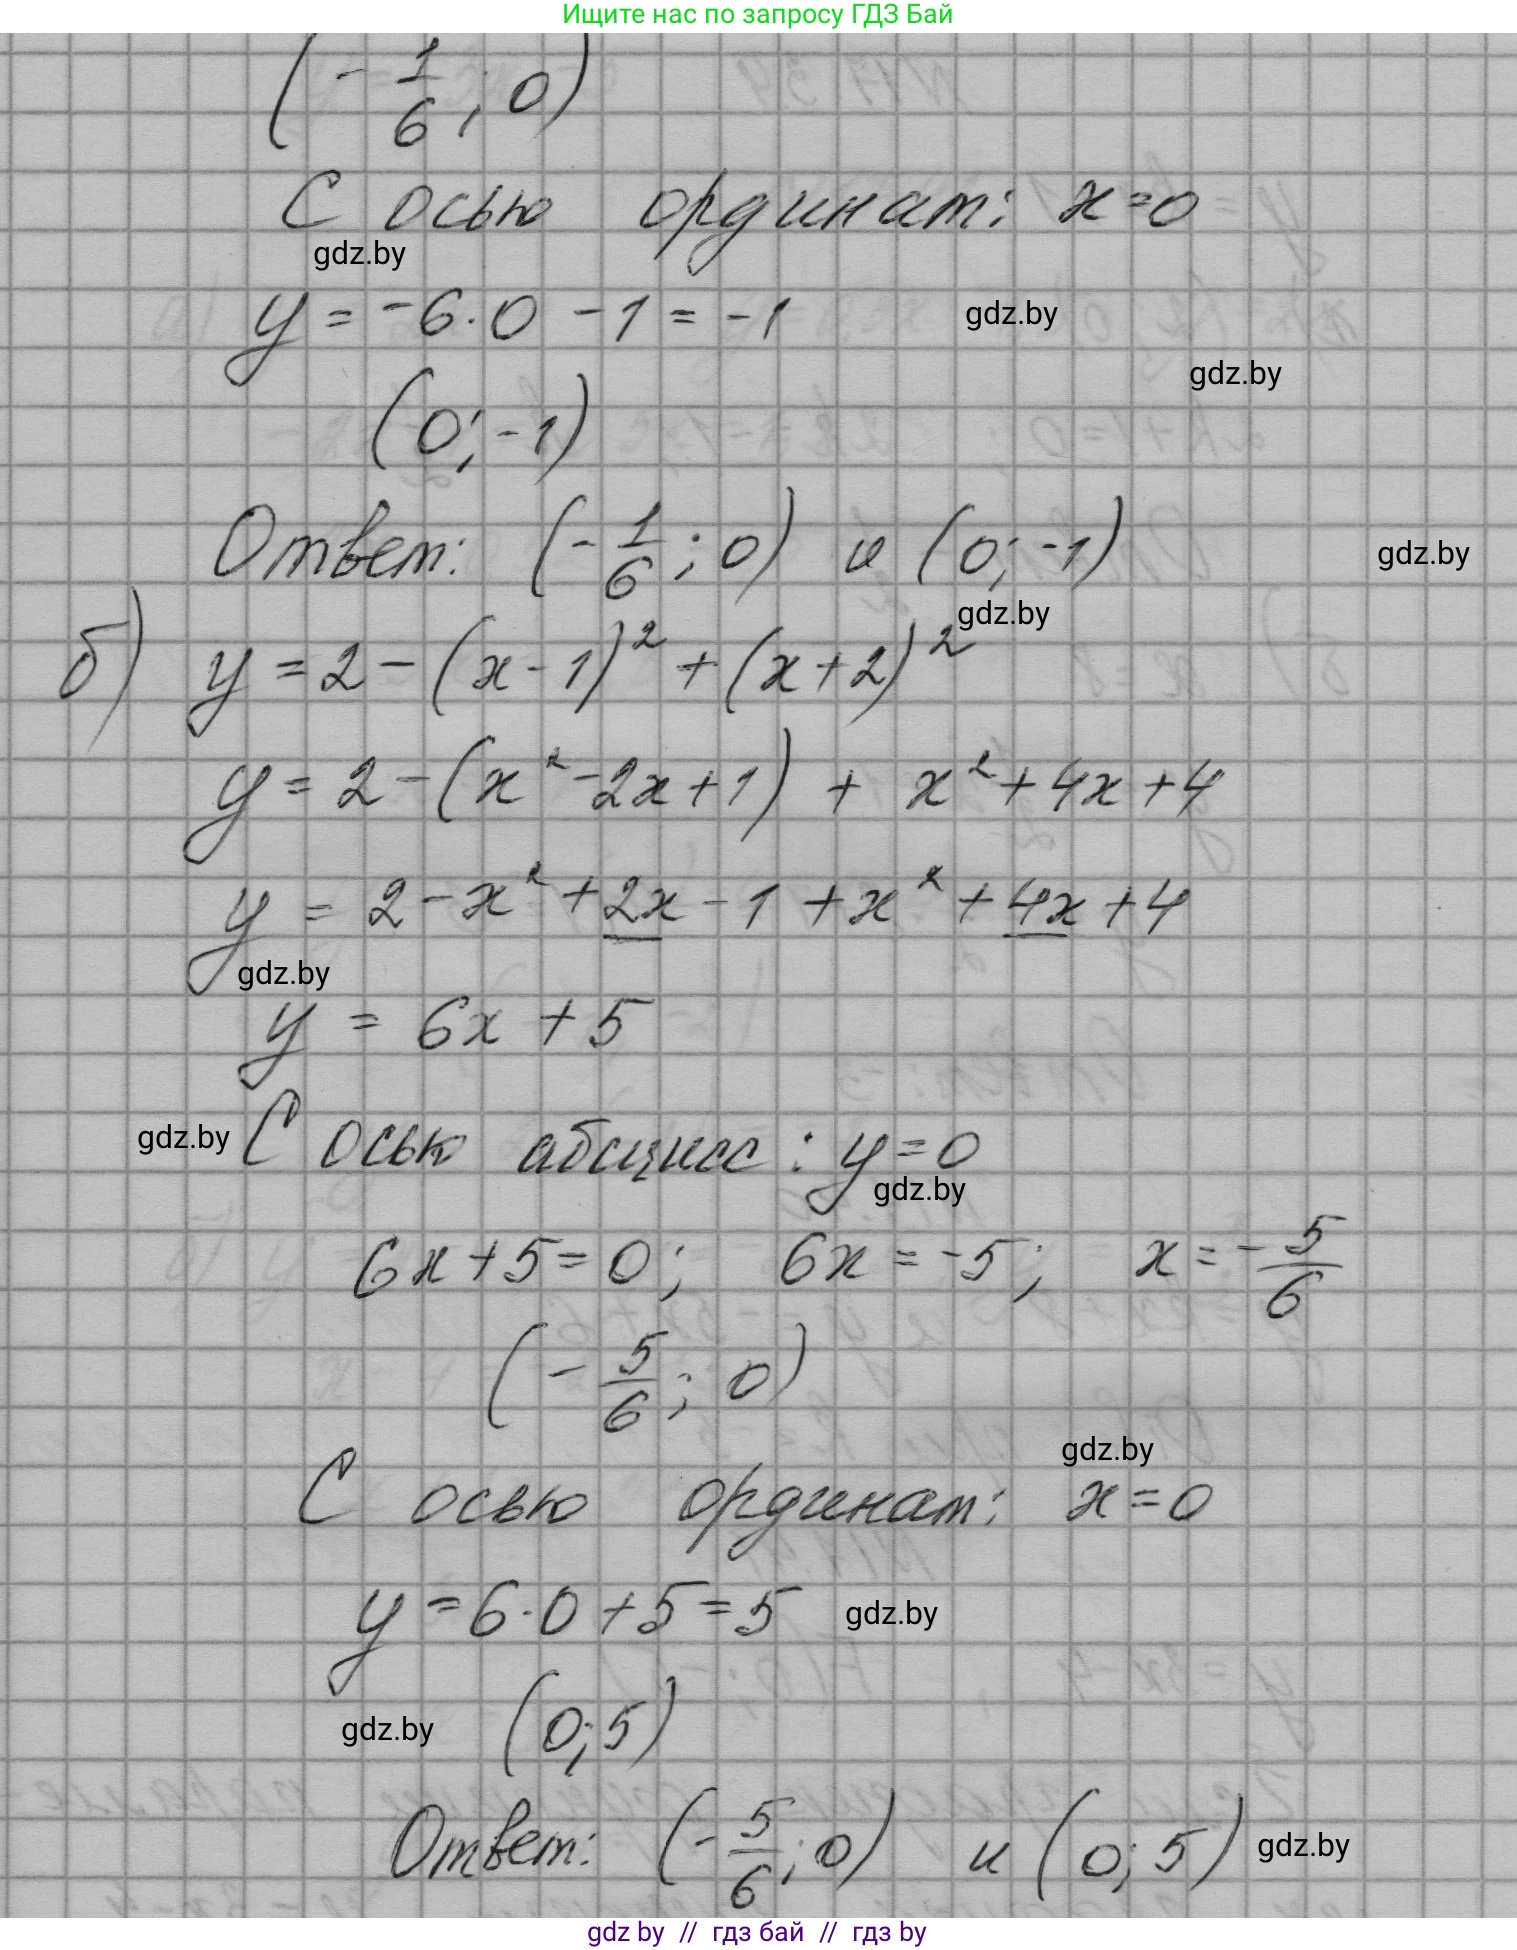 Ищите нас по запросу ГДЗ Бай
(-1/6; 0)
С осью ординат: x=0
gdz.by
y = -6·0 -1 = -1
gdz.by
gdz.by
(0; -1)
Ответ: (-1/6; 0) и (0; -1)
gdz.by
gdz.by
б) y = 2 - (x-1)² + (x+2)²
y = 2 - (x² - 2x + 1) + x² + 4x + 4
y = 2 - x² + 2x - 1 + x² + 4x + 4
gdz.by
y = 6x + 5
gdz.by С осью абсцисс: y=0
gdz.by
6x+5=0; 6x = -5; x = -5/6
(-5/6; 0)
gdz.by
С осью ординат: x=0
y = 6·0 + 5 = 5 gdz.by
gdz.by (0; 5)
Ответ: (-5/6; 0) и (0; 5) gdz.by
gdz by // гдз бай // гдз by